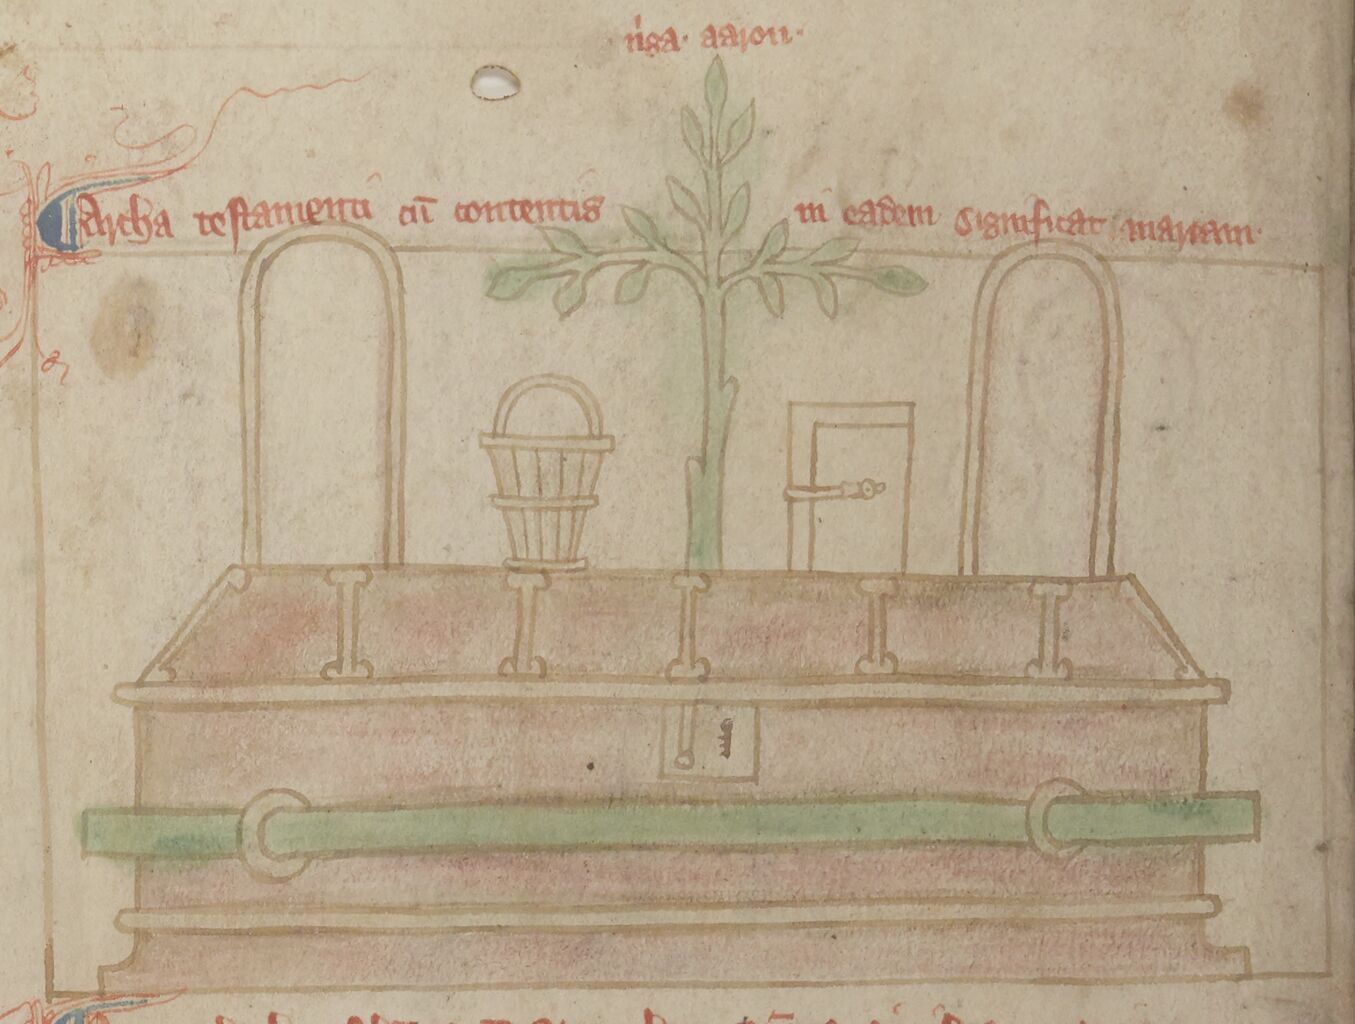 v'ga· aaron·
Archa testamenti cū contentis in eadem significat mariam·